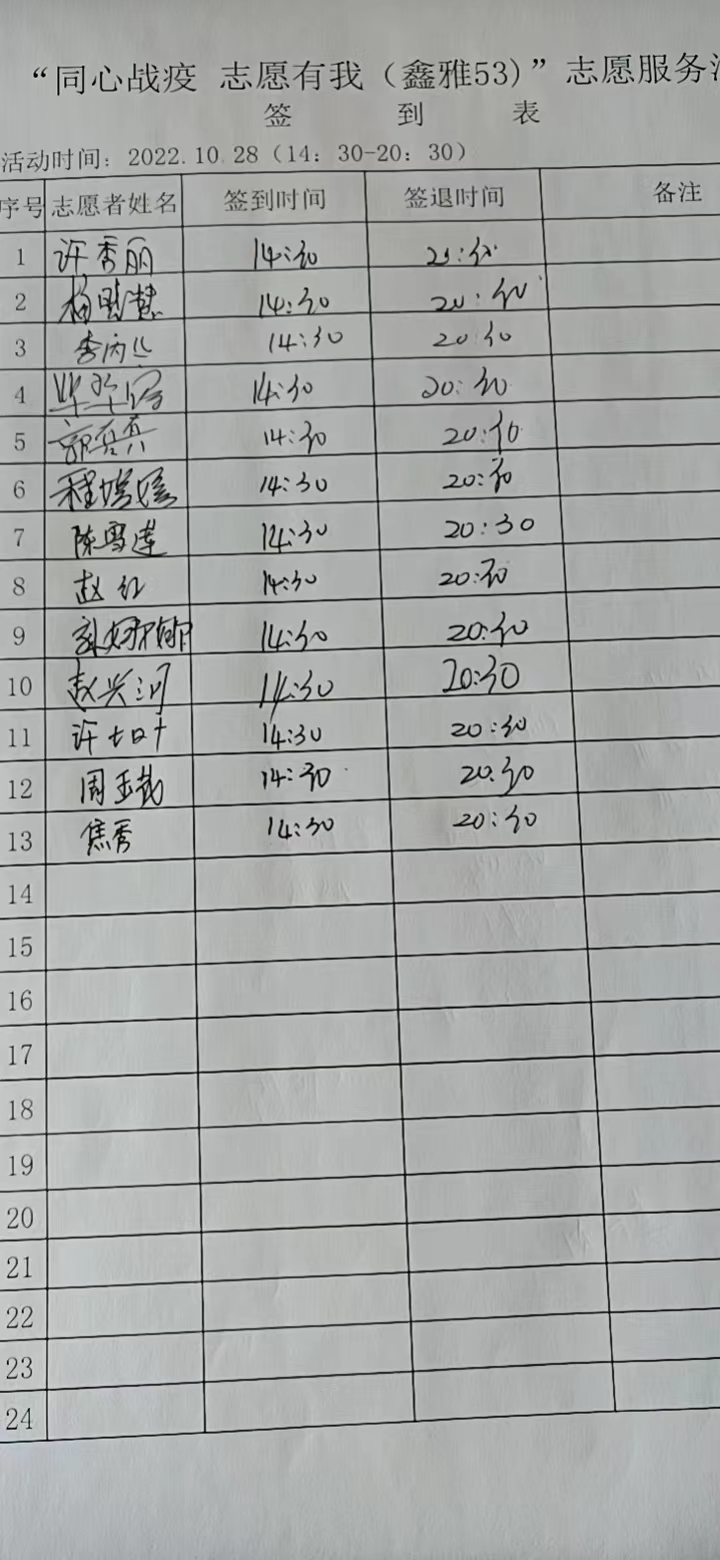 “同心战疫 志愿有我（鑫雅53)”志愿服务
签 到 表
活动时间：2022.10.28（14：30-20：30）
序号 志愿者姓名 签到时间 签退时间 备注
1 许秀丽 14:30
2 14:30 20:30
3 14:30 20:30
4 14:30 20:30
5 14:30 20:30
6 程嫦嫦 14:30 20:30
7 陈雪莲 14:30 20:30
8 赵红 14:30 20:30
9 14:30 20:30
10 赵兴河 14:30 20:30
11 许七叶 14:30 20:30
12 周玉裁 14:30 20:30
13 焦秀 14:30 20:30
14
15
16
17
18
19
20
21
22
23
24